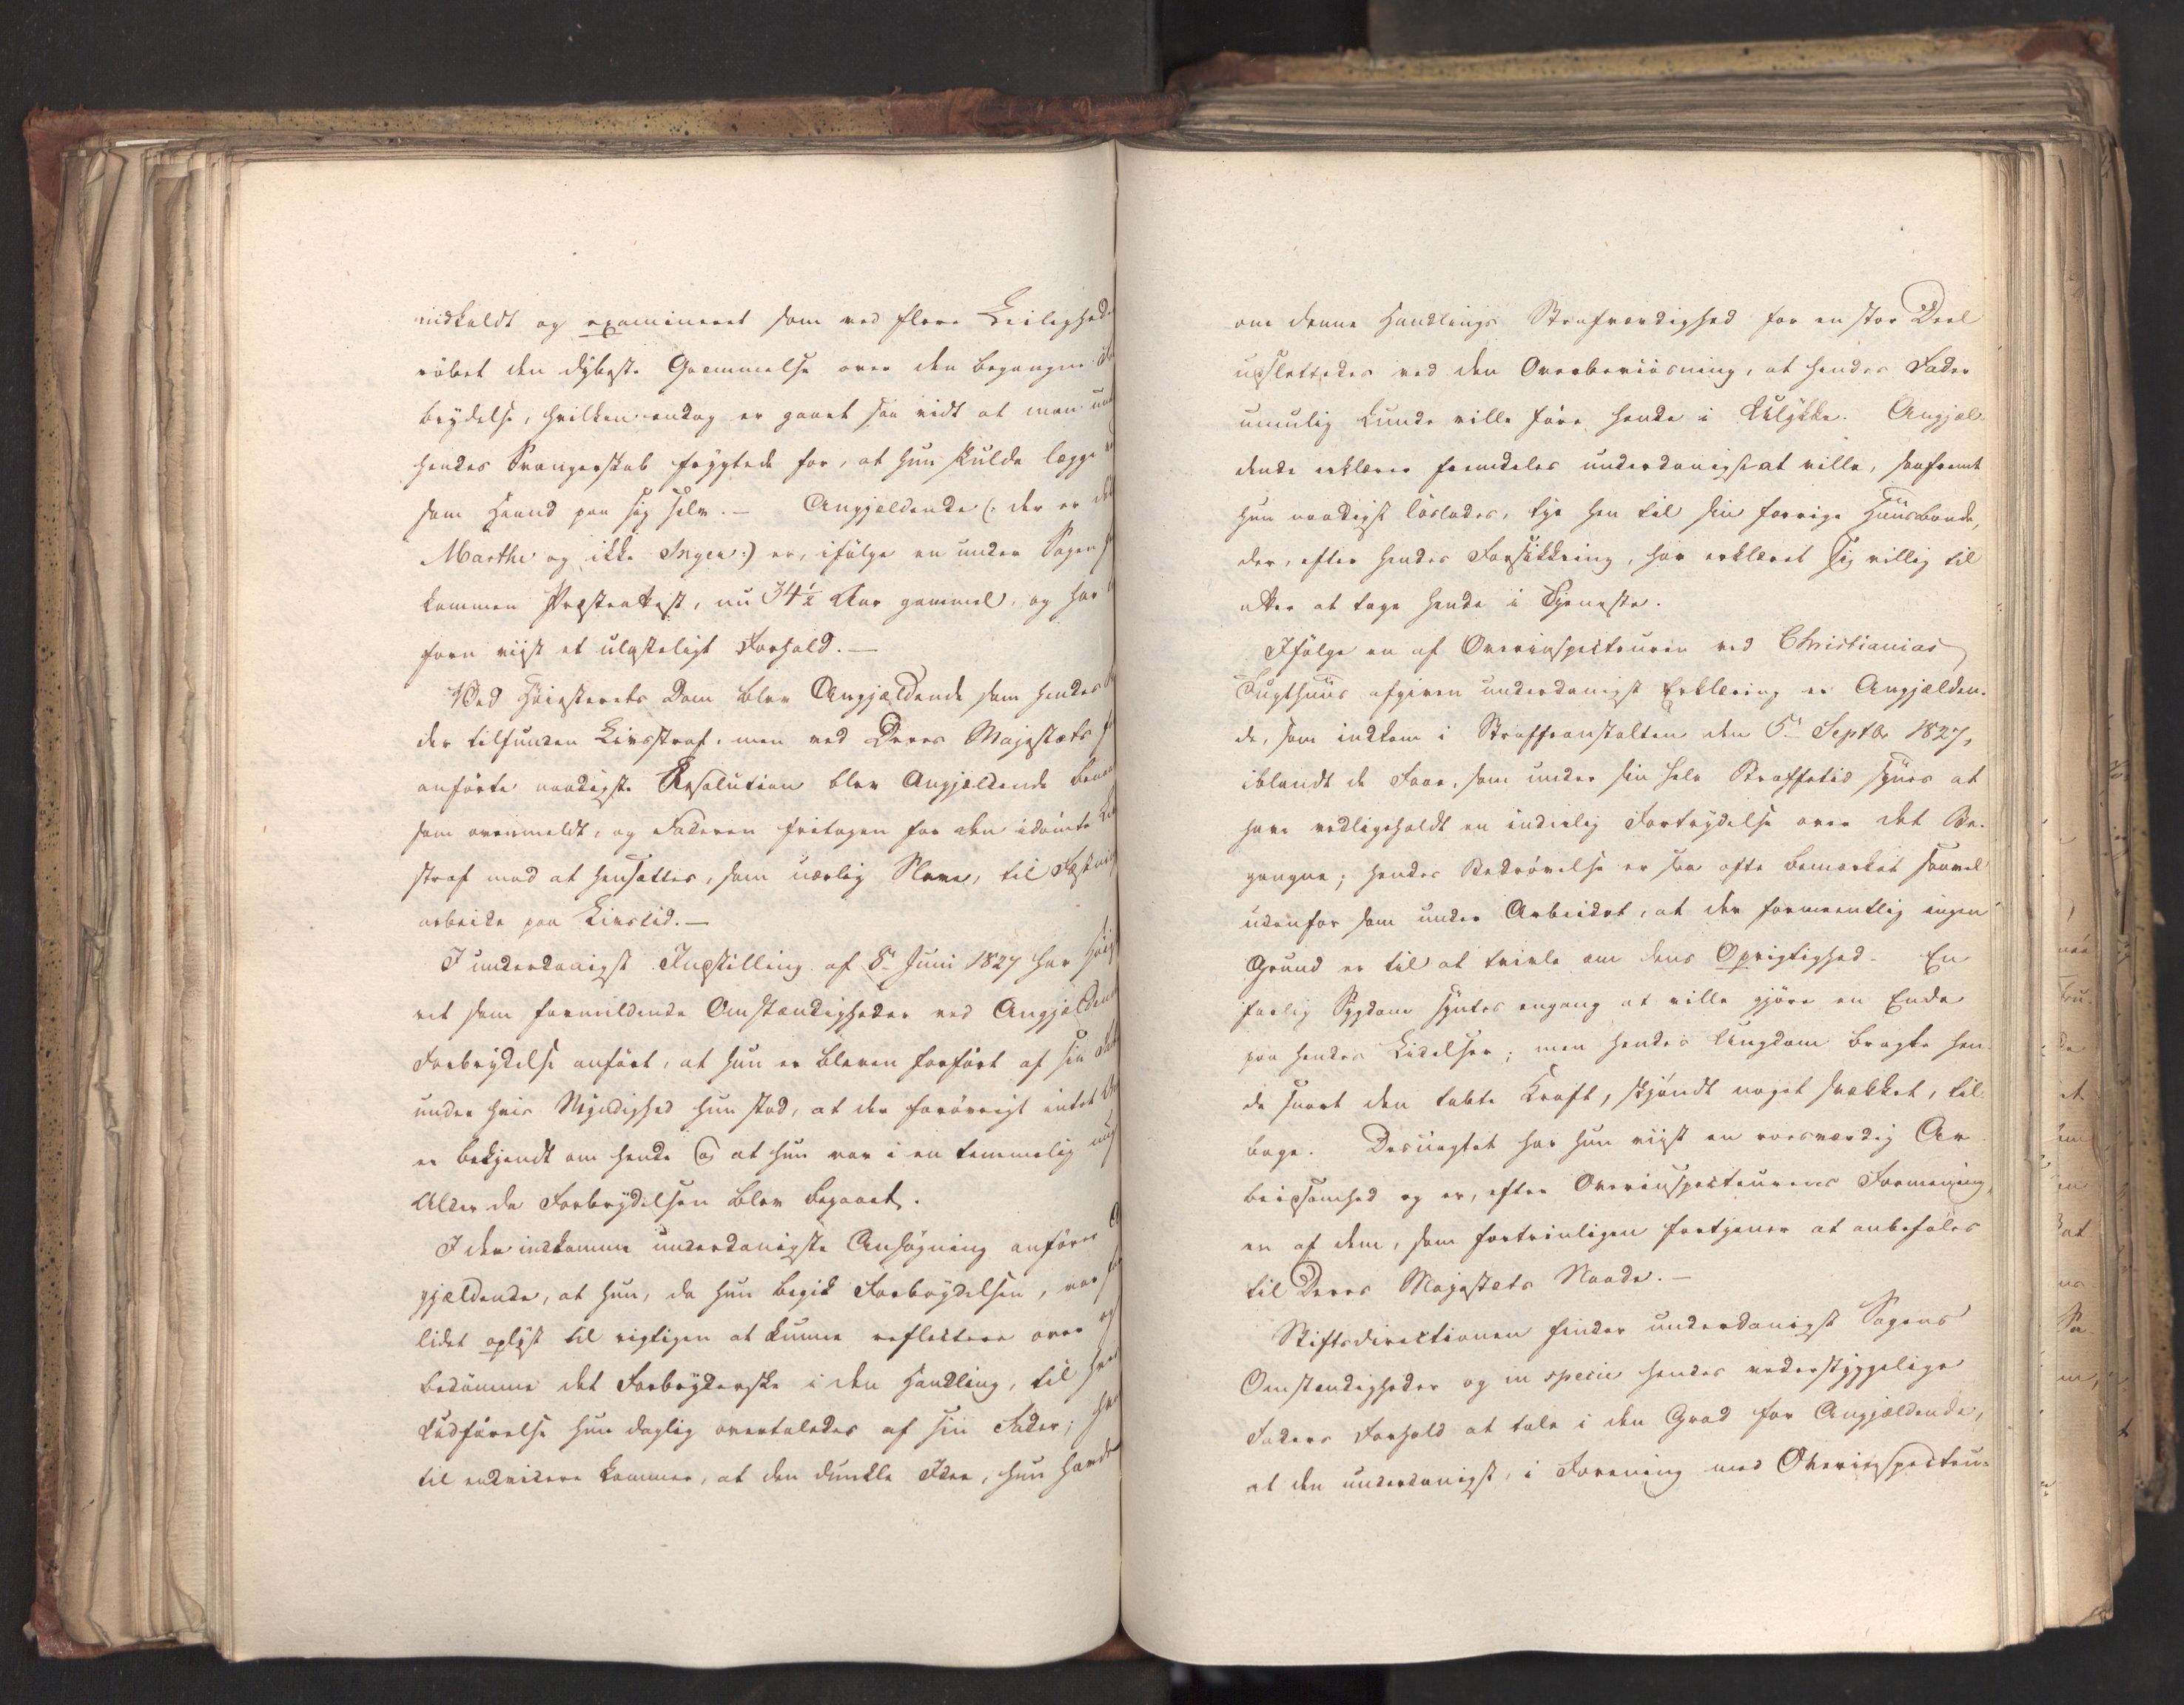 indkaldt og examineret som ved flere Leilighed
röbet den dybeste Græmmelse over den begangne
brydelse, hvilken endog er gaaet saa vidt at man
hendes Svangerskab frygtede for, at hun skulde lægge
som Haand paa sig selv. — Angjældende (: der er
Marthe og ikke Inger :) er, ifølge en under Sagen
kommen Præsteattest, nu 34½ Aar gammel, og har
forn viist et ulasteligt Forhold. —
Ved Høiesterets Dom blev Angjældende som hendes
der tilfunden Livsstraf, men ved Deres Majestæts
anførte naadigste Resolution blev Angjældende
som ovenmeldt, og Faderen fritagen for den idömte
straf mod at hensættes, som uærlig Slave, til
arbeide paa Livstid. —
I underdanigst Indstilling af 8de Juni 1827 har
ret som formildende Omstændigheder ved
Forbrydelse anført, at hun er bleven forført af sin
under hvis Myndighed hun stod, at der forøvrigt intet
er bekjendt om hende og at hun var i en temmelig
Alder da Forbrydelsen blev begaaet.
I den indkomne underdanigste Ansøgning anfører
gjældende, at hun, da hun begik Forbrydelsen, var
lidet oplyst til rigtigen at kunne reflectere over
bedömme det Forbryderske i den Handling, til
Udførelse hun daglig overtaledes af sin Fader;
til endvidere kommer, at den dunkle Idee, hun havde
om denne Handlings Strafværdighed for en stor Deel
udslettedes ved den Overbeviisning, at hendes Fader
umulig kunde ville føre hende i Ulykke. Angjæl-
dende erklærer fremdeles underdanigst at ville, saafremt
hun naadigst løslades, tye hen til sin forrige Huusbonde,
der, efter hendes Forsikkring, har erklæret sig villig til
atter at tage hende i Tjeneste.
Ifølge en af Overinspecteuren ved Christianias
Tugthuus afgiven underdanigst Erklæring er Angjælden-
de, som indkom i Straffeanstalten den 5te Septbr 1827,
iblandt de Faae, som under sin hele Straffetid synes at
have vedligeholdt en inderlig Fortrydelse over det Be-
gangne; hendes Bedrøvelse er saa ofte bemærket saavel
udenfor som under Arbeidet, at der formeentlig ingen
Grund er til at tvivle om dens Oprigtighed. En
farlig Sygdom syntes engang at ville gjøre en Ende
paa hendes Lidelser; men hendes Ungdom bragte hen-
de snart den tabte Kraft, skjøndt noget svækket, til-
bage. Desuagtet har hun viist en roesværdig Ar-
beidsomhed og er, efter Overinspecteurens Formening,
en af dem, som fortrinligen fortjener at anbefales
til Deres Majestæts Naade. —
Stiftsdirectionen finder underdanigst Sagens
Omstændigheder og in specie hendes vederstyggelige
Faders Forhold at tale i den Grad for Angjældende,
at den underdanigst, i Forening med Overinspecteu-